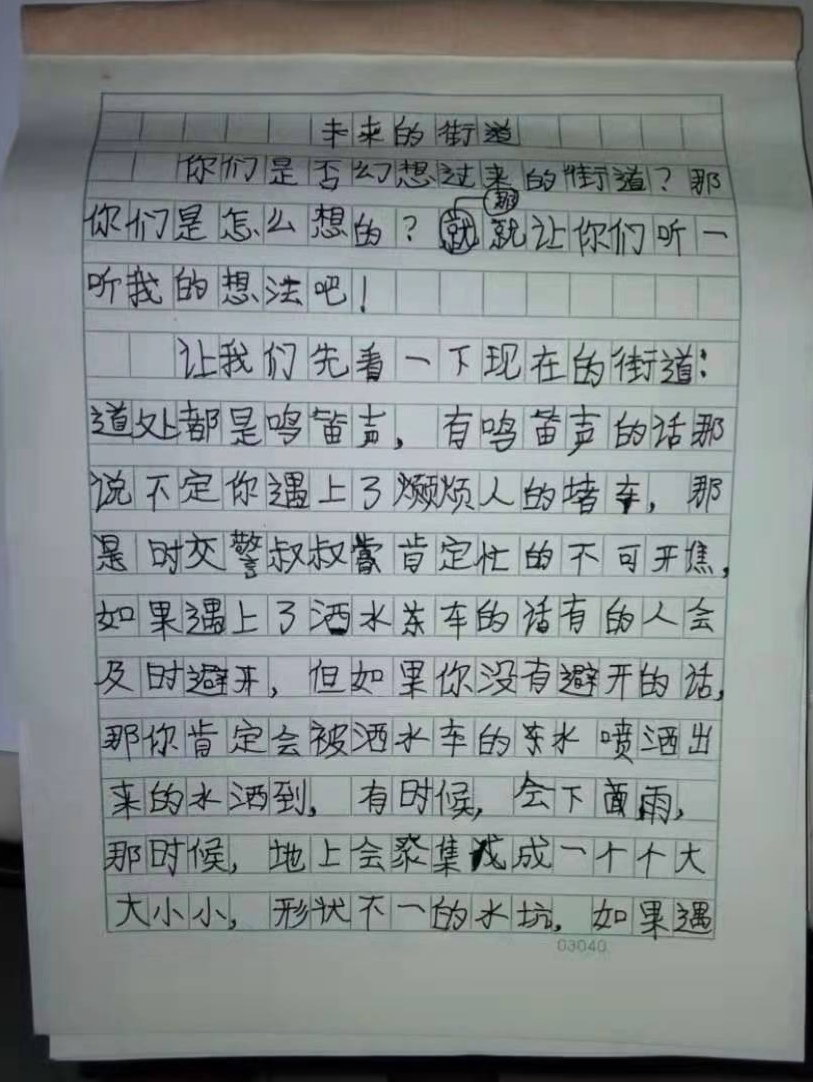 未来的街道
你们是否幻想过来的街道？那
你们是怎么想的？就那就让你们听一
听我的想法吧！
让我们先看一下现在的街道：
道处都是鸣笛声，有鸣笛声的话那
说不定你遇上了烦人的堵车，那
是时交警叔叔肯定忙的不可开焦，
如果遇上了洒水车的话有的人会
及时避开，但如果你没有避开的话，
那你肯定会被洒水车的水喷洒出
来的水洒到，有时候，会下雨，
那时候，地上会聚集成一个个大
大小小，形状不一的水坑，如果遇
03040